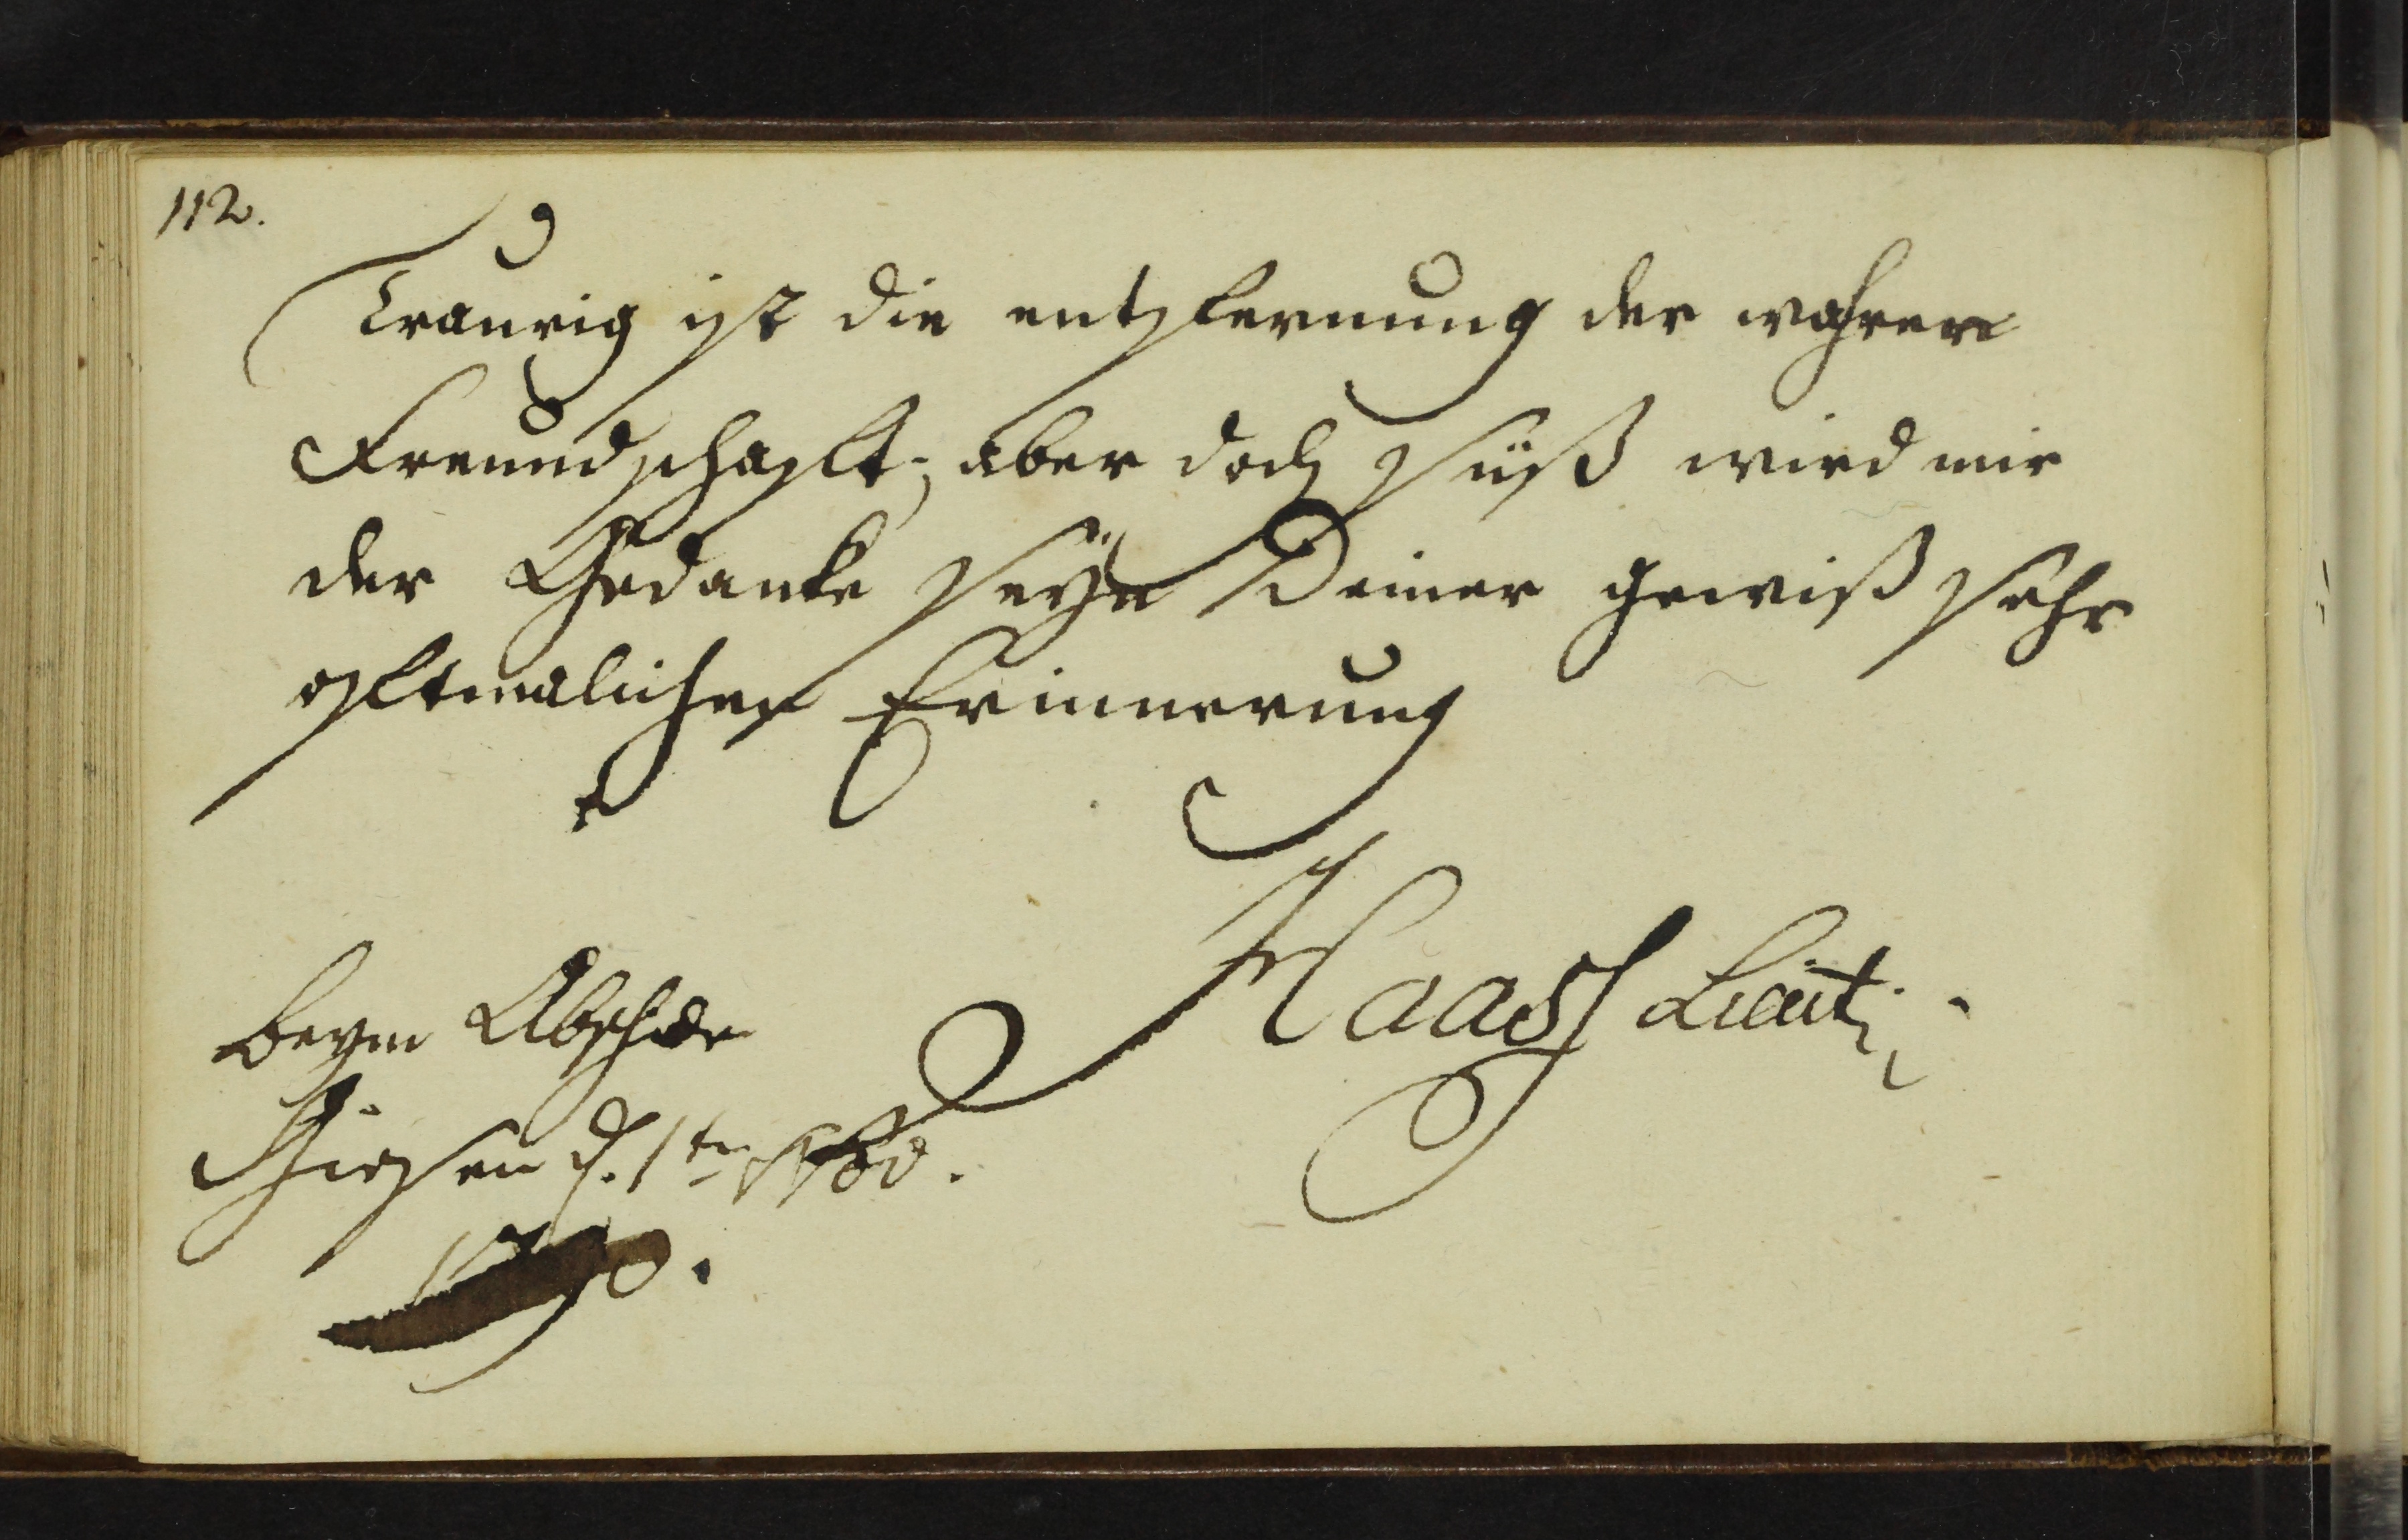 112.
Traurig ist die entfernung der wahren
Freundschaft; aber doch süß wird mir
der Gedanke seÿn Deiner gewiß sehr
oftmalichen Erinnerung
Haass Lieut:
beym Abschide
Giesen d. 1ten
1790.